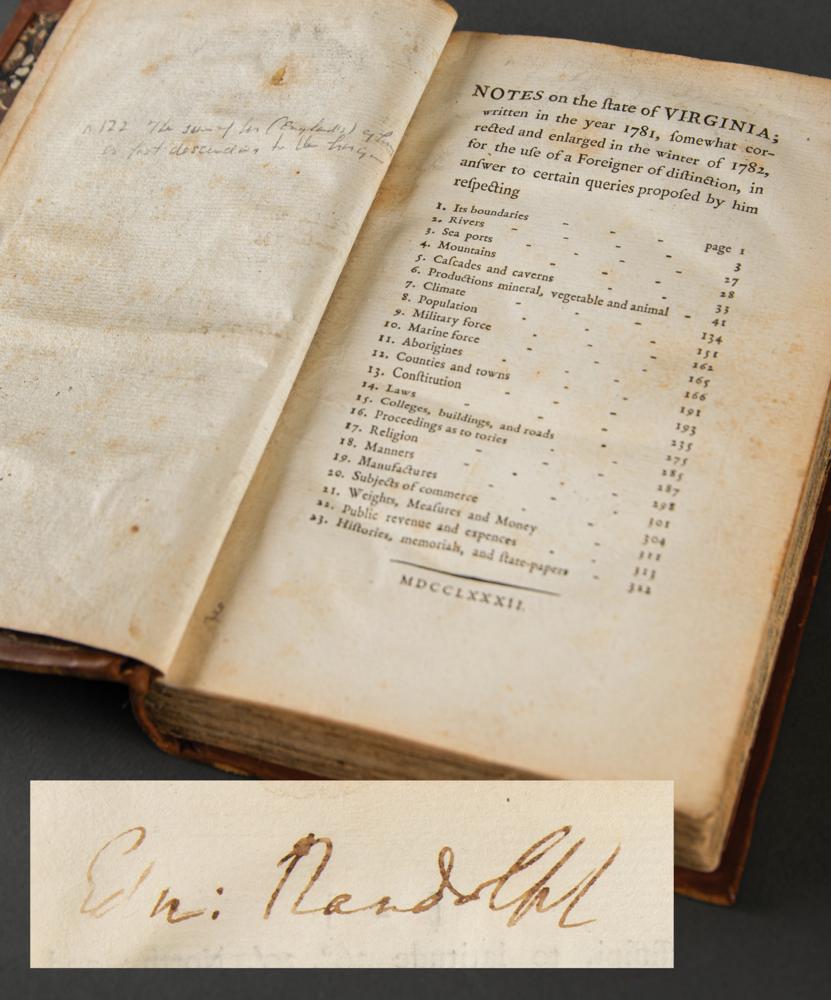 122 The sun of her (England's) glory
is fast descending to the horizon
NOTES on the ſtate of VIRGINIA;
written in the year 1781, ſomewhat cor-
rected and enlarged in the winter of 1782,
for the uſe of a Foreigner of diſtinction, in
anſwer to certain queries propoſed by him
reſpecting
1. Its boundaries - - - page 1
2. Rivers - - - 3
3. Sea ports - - - 27
4. Mountains - - - 28
5. Caſcades and caverns - - 33
6. Productions mineral, vegetable and animal - 41
7. Climate - - - 134
8. Population - - - 151
9. Military force - - - 162
10. Marine force - - - 165
11. Aborigines - - - 166
12. Counties and towns - - 191
13. Conſtitution - - - 193
14. Laws - - - 235
15. Colleges, buildings, and roads - 275
16. Proceedings as to tories - - 285
17. Religion - - - 287
18. Manners - - - 298
19. Manufactures - - - 301
20. Subjects of commerce - - 304
21. Weights, Meaſures and Money - 311
22. Public revenue and expences - 313
23. Hiſtories, memorials, and ſtate-papers - 322
MDCCLXXXII.
Edm: Randolph